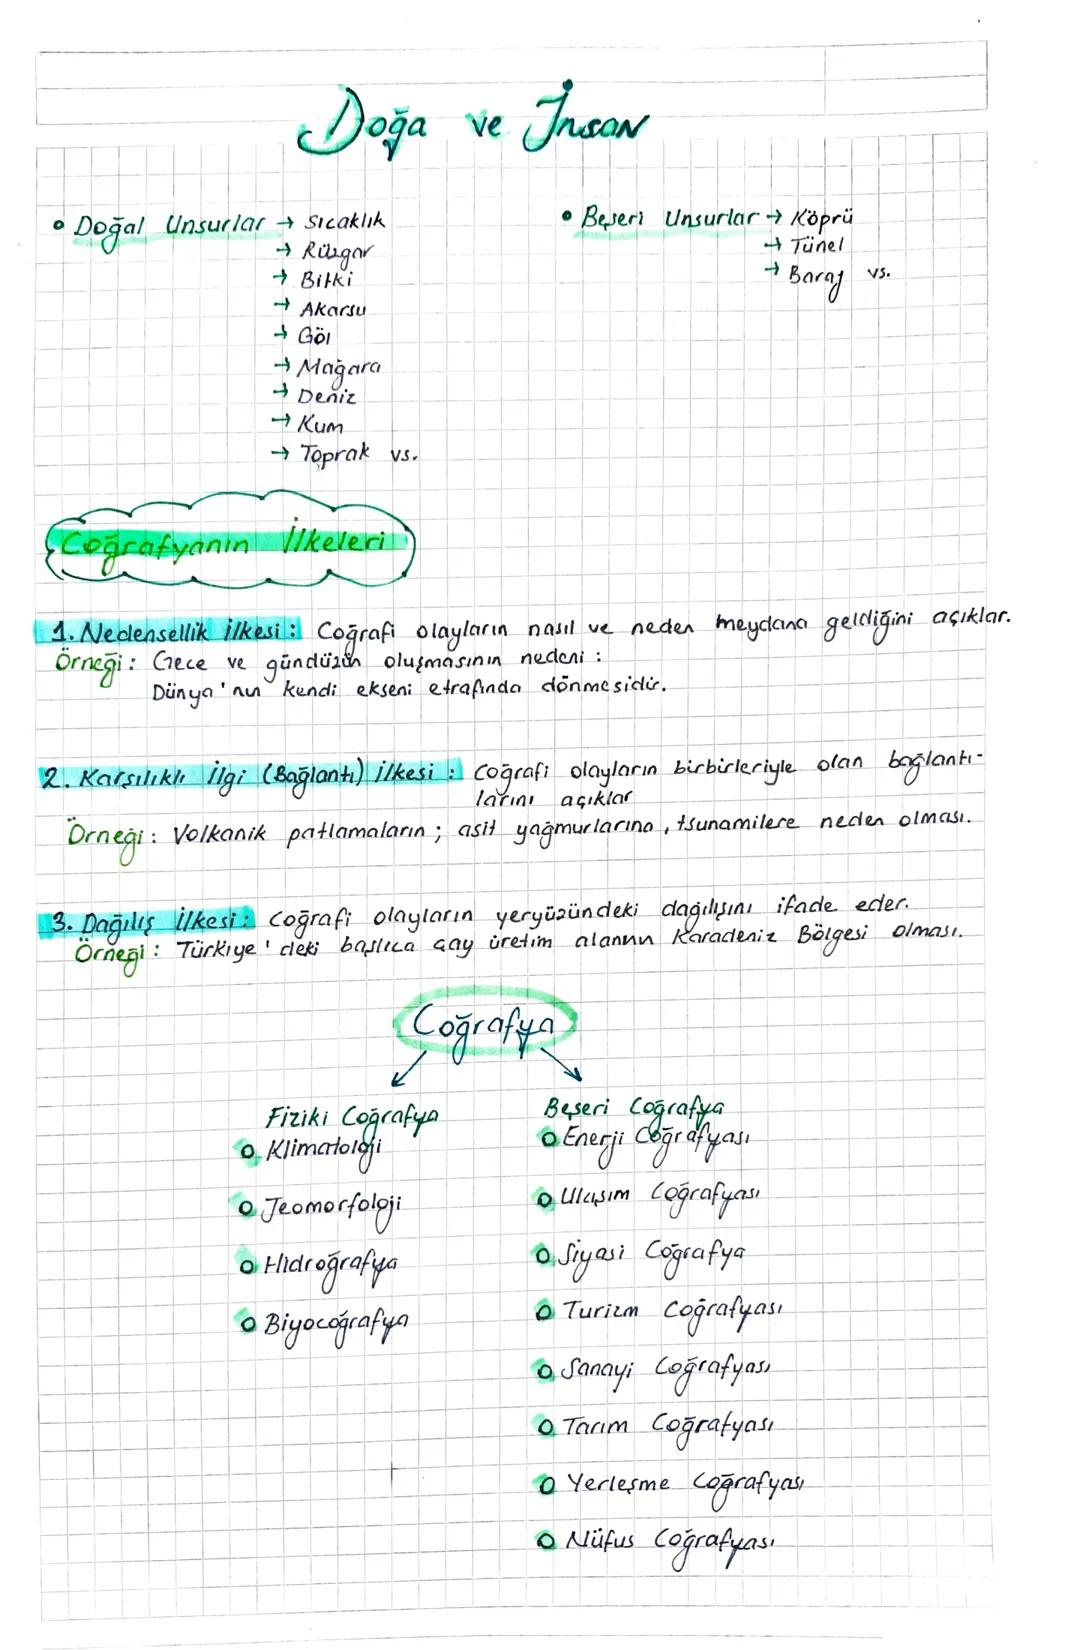 Doğa ve İnsan
• Doğal Unsurlar → Sıcaklık
→ Rüzgar
→ Bitki
→ Akarsu
→ Göl
→ Mağara
→ Deniz
→ Kum
→ Toprak vs.
• Beşeri Unsurlar → Köprü
→ Tünel
→ Baraj vs.
Coğrafyanın İlkeleri
1. Nedensellik İlkesi: Coğrafi olayların nasıl ve neden meydana geldiğini açıklar.
Örneği: Gece ve gündüzün oluşmasının nedeni:
Dünya'nın kendi ekseni etrafında dönmesidir.
2. Karşılıklı İlgi (Bağlantı) İlkesi: Coğrafi olayların birbirleriyle olan bağlantı-
larını açıklar
Örneği: Volkanik patlamaların; asit yağmurlarına, tsunamilere neden olması.
3. Dağılış İlkesi: Coğrafi olayların yeryüzündeki dağılışını ifade eder.
Örneği: Türkiye'deki başlıca çay üretim alanının Karadeniz Bölgesi olması.
Coğrafya
Fiziki Coğrafya
o Klimatoloji
o Jeomorfoloji
o Hidroğrafya
o Biyocoğrafya
Beşeri Coğrafya
o Enerji Coğrafyası
o Ulaşım Coğrafyası
o Siyasi Coğrafya
o Turizm Coğrafyası
o Sanayi Coğrafyası
o Tarım Coğrafyası
o Yerleşme Coğrafyası
o Nüfus Coğrafyası